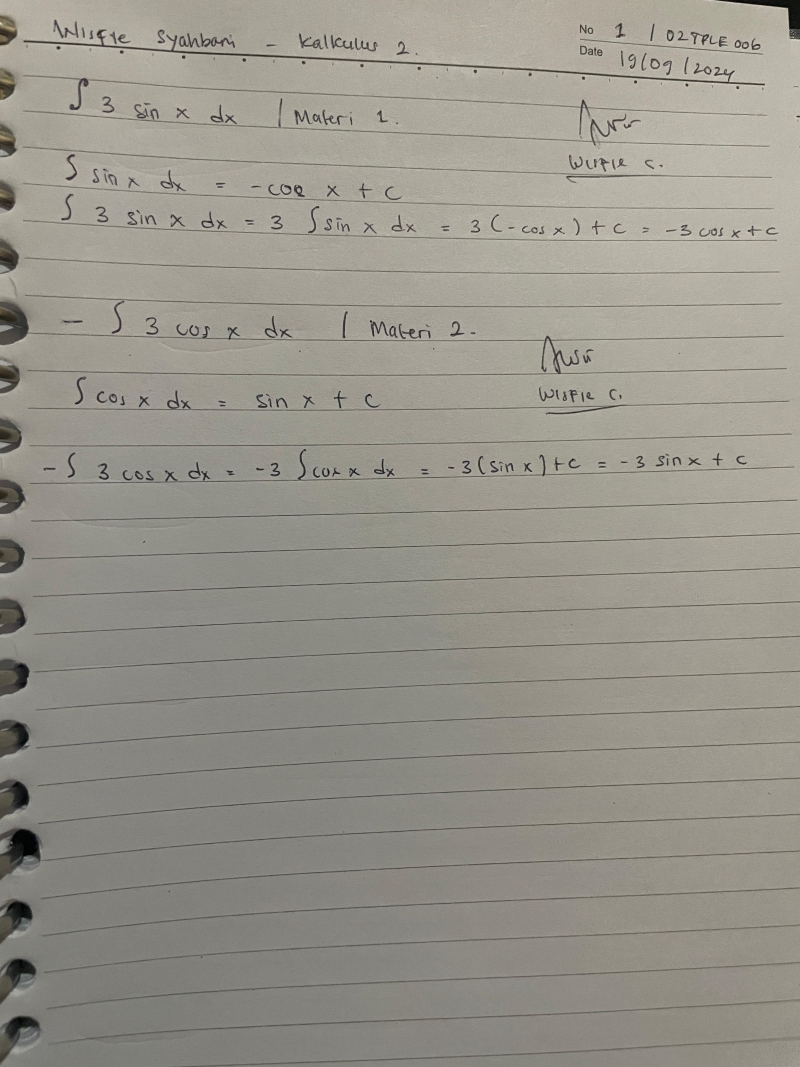 Wisfie Syahbani - Kalkulus 2.
No 1 / 02TPLE006
Date 19/09/2024
∫ 3 sin x dx | Materi 1.
Wisfie S.
∫ sin x dx = -cos x + c
∫ 3 sin x dx = 3 ∫ sin x dx = 3(-cos x) + c = -3 cos x + c
- ∫ 3 cos x dx | Materi 2.
Wisfie S.
∫ cos x dx = sin x + c
-∫ 3 cos x dx = -3 ∫ cos x dx = -3(sin x) + c = -3 sin x + c